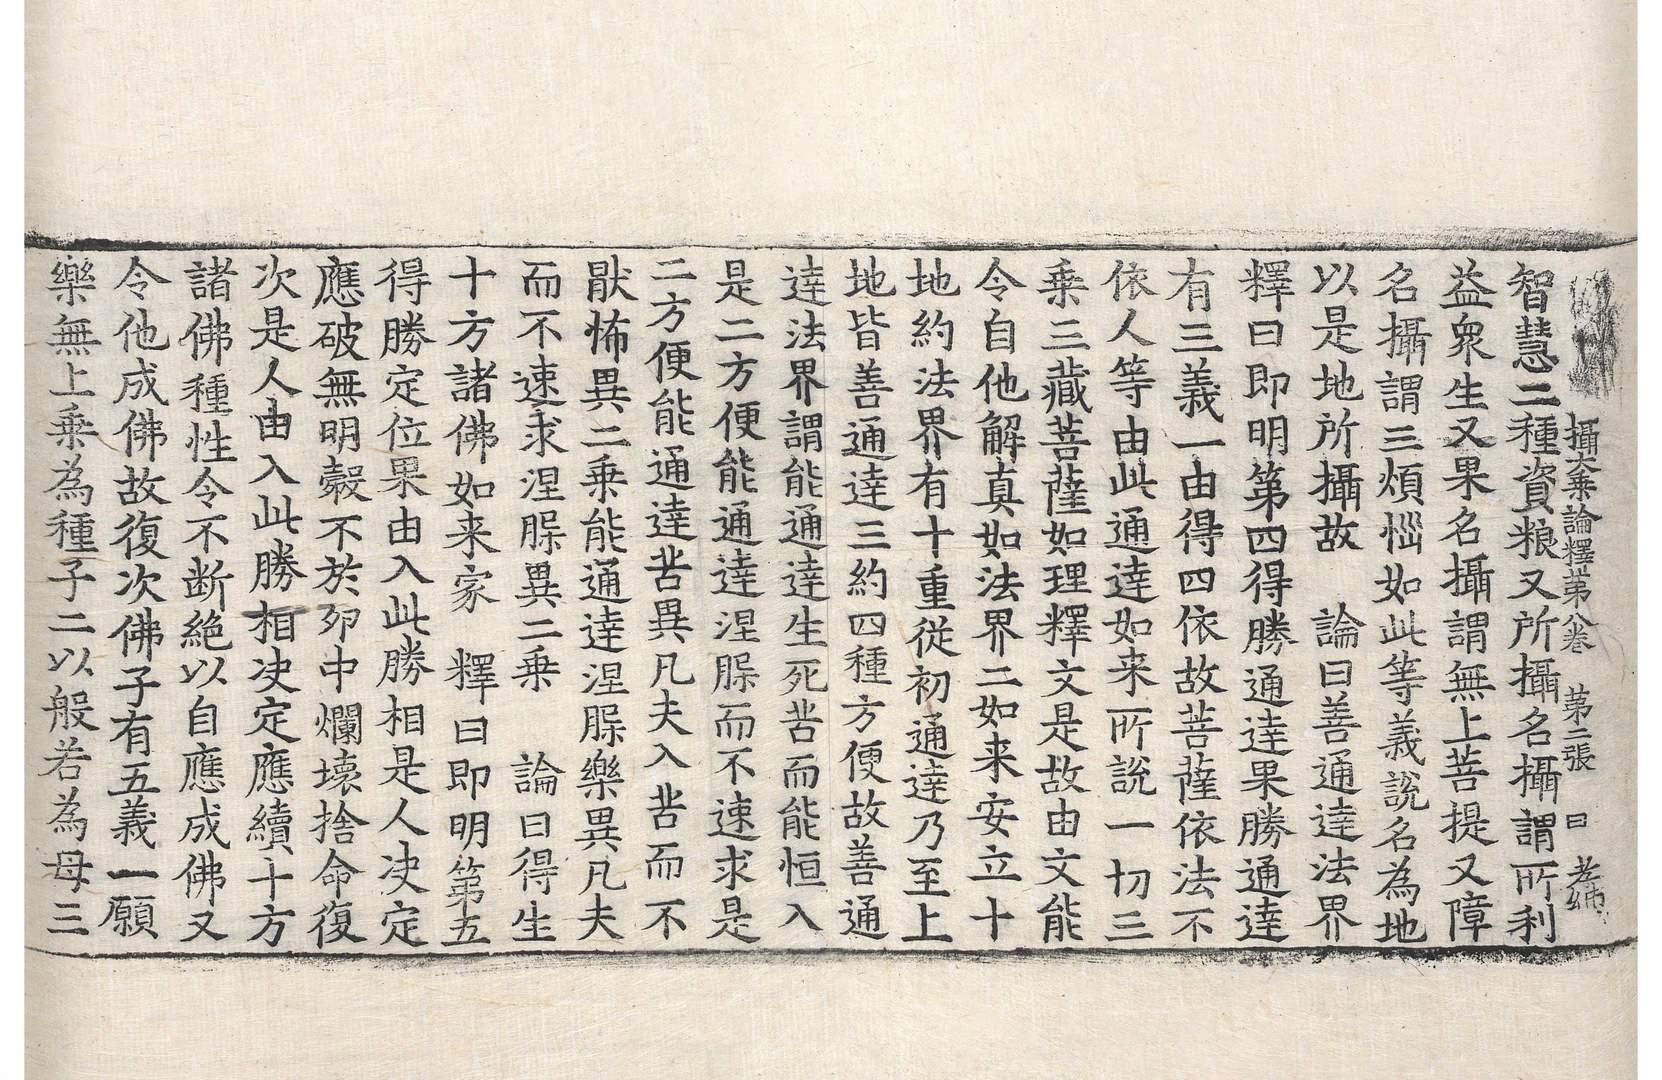 攝大乘論釋第八卷　第二張　曰　老
智慧二種資粮又所攝名攝謂所利
益衆生又果名攝謂無上菩提又障
名攝謂三煩惱如此等義說名為地
以是地所攝故　論曰善通達法界
釋曰即明第四得勝通達果勝通達
有三義一由得四依故菩薩依法不
依人等由此通達如来所說一切三
乗三藏菩薩如理釋文是故由文能
令自他解真如法界二如来安立十
地約法界有十重從初通達乃至上
地皆善通達三約四種方便故善通
達法界謂能通達生死苦而能恒入
是二方便能通達涅槃而不速求是
二方便能通達苦異凡夫入苦而不
猒怖異二乗能通達涅槃樂異凡夫
而不速求涅槃異二乗　論曰得生
十方諸佛如来家　釋曰即明第五
得勝定位果由入此勝相是人决定
應破無明㲉不於夘中爛壞捨命復
次是人由入此勝相决定應續十方
諸佛種性令不断絶以自應成佛又
令他成佛故復次佛子有五義一願
樂無上乗為種子二以般若為母三